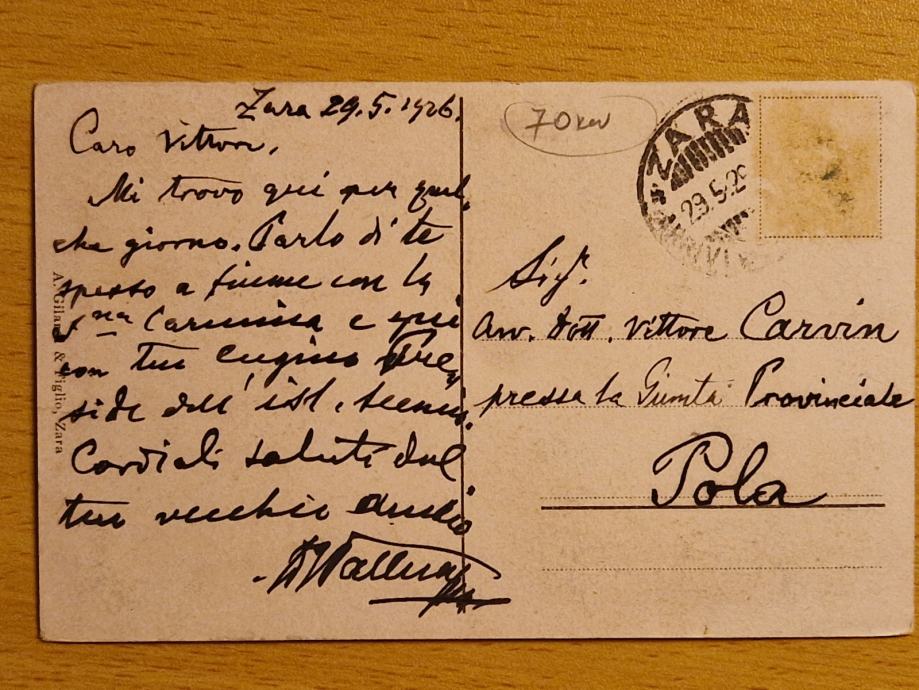 Zara 29.5.1926.
Caro Vittore,
Mi trovo qui per qual
che giorno. Parlo di te
spesso a fiume con la
S.na Carmina e qui
con tuo cugino Pre
side dell' ist. tecnico.
Cordiali saluti dal
tuo vecchio amico
A. Gilardi & Figlio, Zara
70
ZARA
29.5.26
Sigr.
Avv. Dott. Vittore Carvin
presso la Giunta Provinciale
Pola